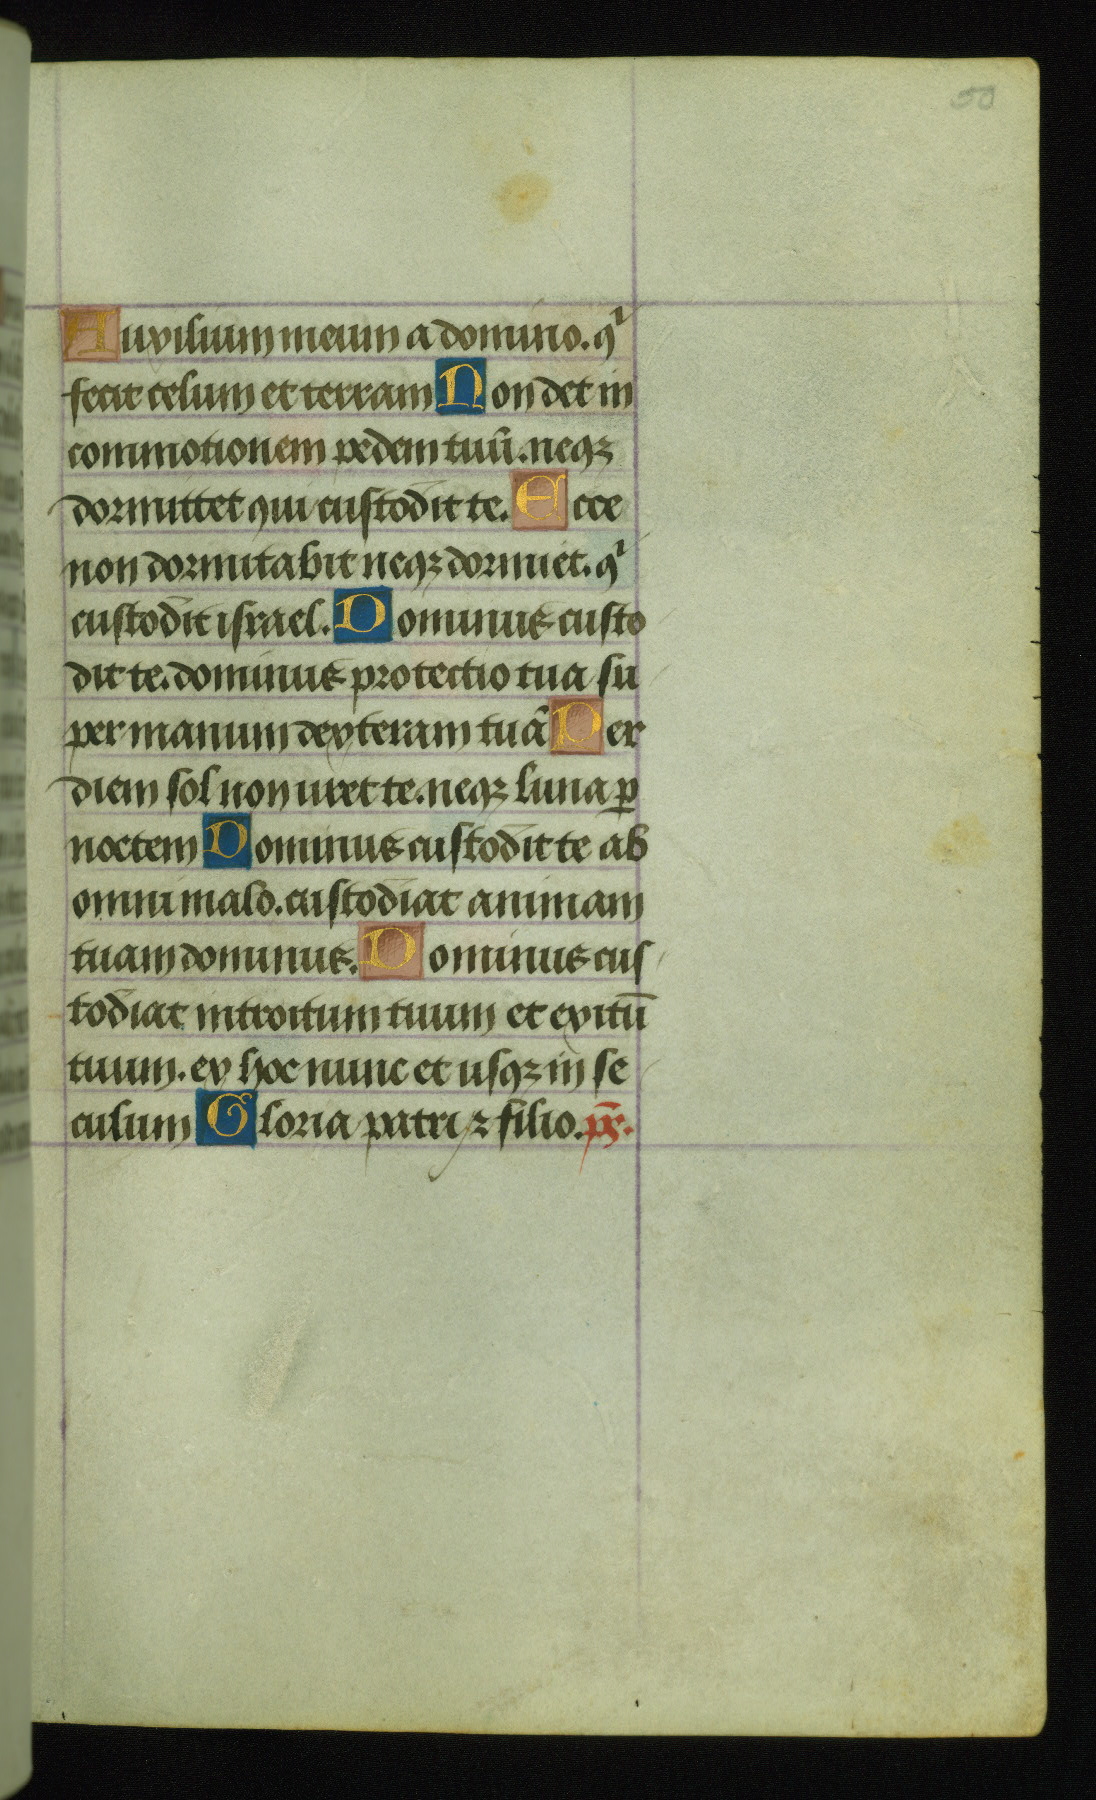 50
Auxilium meum a domino. qⁱ
fecit celum et terram Non det in
commotionem pedem tuū. neqꝫ
dormittet qui custodit te. Ecce
non dormitabit neqꝫ dormiet. qⁱ
custodit israel. Dominus custo
dit te. dominus protectio tua su
per manum dexteram tuā Per
diem sol non uret te. neqꝫ luna ꝑ
noctem Dominus custodit te ab
omni malo. custodiat animam
tuam dominus. Dominus cus
todiat introitum tuum et exitū
tuum. ex hoc nunc et usqꝫ in se
culum Gloria patri ⁊ filio. p̄s.